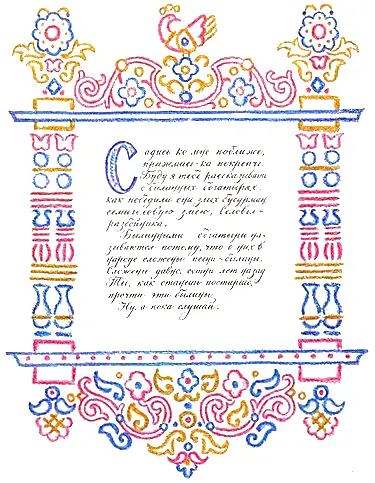 Садись ко мне поближе,
прижмись-ка покрепче.
Буду я тебе рассказывать
о былинных богатырях.
как победили они злых бусурман,
семиглавую змею, Соловья-
разбойника.
Былинными богатыри на-
зываются потому, что о них в
народе сложены песни - былины.
Сложены давно,
Ты, как станешь постарше,
прочти эти былины.
Ну, а пока слушай.